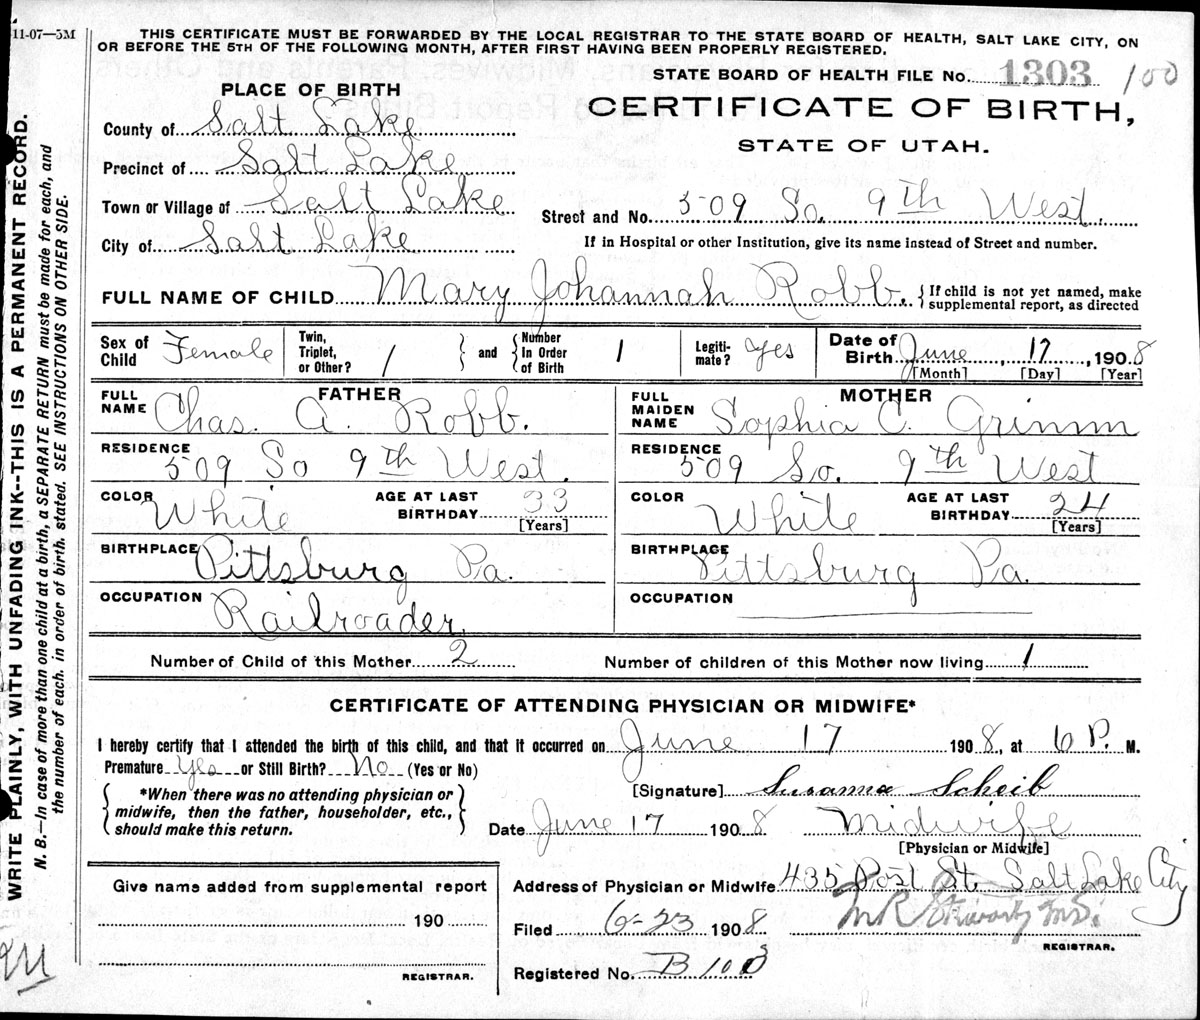 11-07—5M
THIS CERTIFICATE MUST BE FORWARDED BY THE LOCAL REGISTRAR TO THE STATE BOARD OF HEALTH, SALT LAKE CITY, ON
OR BEFORE THE 5TH OF THE FOLLOWING MONTH, AFTER FIRST HAVING BEEN PROPERLY REGISTERED.
STATE BOARD OF HEALTH FILE No. 1303 100
PLACE OF BIRTH
CERTIFICATE OF BIRTH,
STATE OF UTAH.
County of Salt Lake
Precinct of Salt Lake
Town or Village of Salt Lake
City of Salt Lake
Street and No. 509 So. 9th West.
If in Hospital or other Institution, give its name instead of Street and number.
FULL NAME OF CHILD Mary Johannah Robb. { If child is not yet named, make
supplemental report, as directed
Sex of Child Female
Twin, Triplet, or Other? 1 } and { Number In Order of Birth 1
Legiti-mate? Yes
Date of Birth June, 17, 1908
[Month] [Day] [Year]
FATHER
FULL NAME Chas. A. Robb.
RESIDENCE 509 So 9th West.
COLOR White AGE AT LAST BIRTHDAY 33
[Years]
BIRTHPLACE Pittsburg Pa.
OCCUPATION Railroader.
MOTHER
FULL MAIDEN NAME Sophia C. Grimm
RESIDENCE 509 So. 9th West
COLOR White AGE AT LAST BIRTHDAY 24
[Years]
BIRTHPLACE Pittsburg Pa.
OCCUPATION
Number of Child of this Mother 2 Number of children of this Mother now living 1
CERTIFICATE OF ATTENDING PHYSICIAN OR MIDWIFE*
I hereby certify that I attended the birth of this child, and that it occurred on June 17 1908, at 6 P. M.
Premature Yes or Still Birth? No (Yes or No)
{ *When there was no attending physician or
midwife, then the father, householder, etc.,
should make this return. }
[Signature] Susanna Scheib
Date June 17 1908 Midwife
[Physician or Midwife]
Give name added from supplemental report
190
REGISTRAR.
Address of Physician or Midwife 435 Post St. Salt Lake City
Filed 6-23 1908 M.D.
REGISTRAR.
Registered No. B 103
WRITE PLAINLY, WITH UNFADING INK--THIS IS A PERMANENT RECORD.
N. B.—In case of more than one child at a birth, a SEPARATE RETURN must be made for each, and
the number of each, in order of birth, stated. SEE INSTRUCTIONS ON OTHER SIDE.